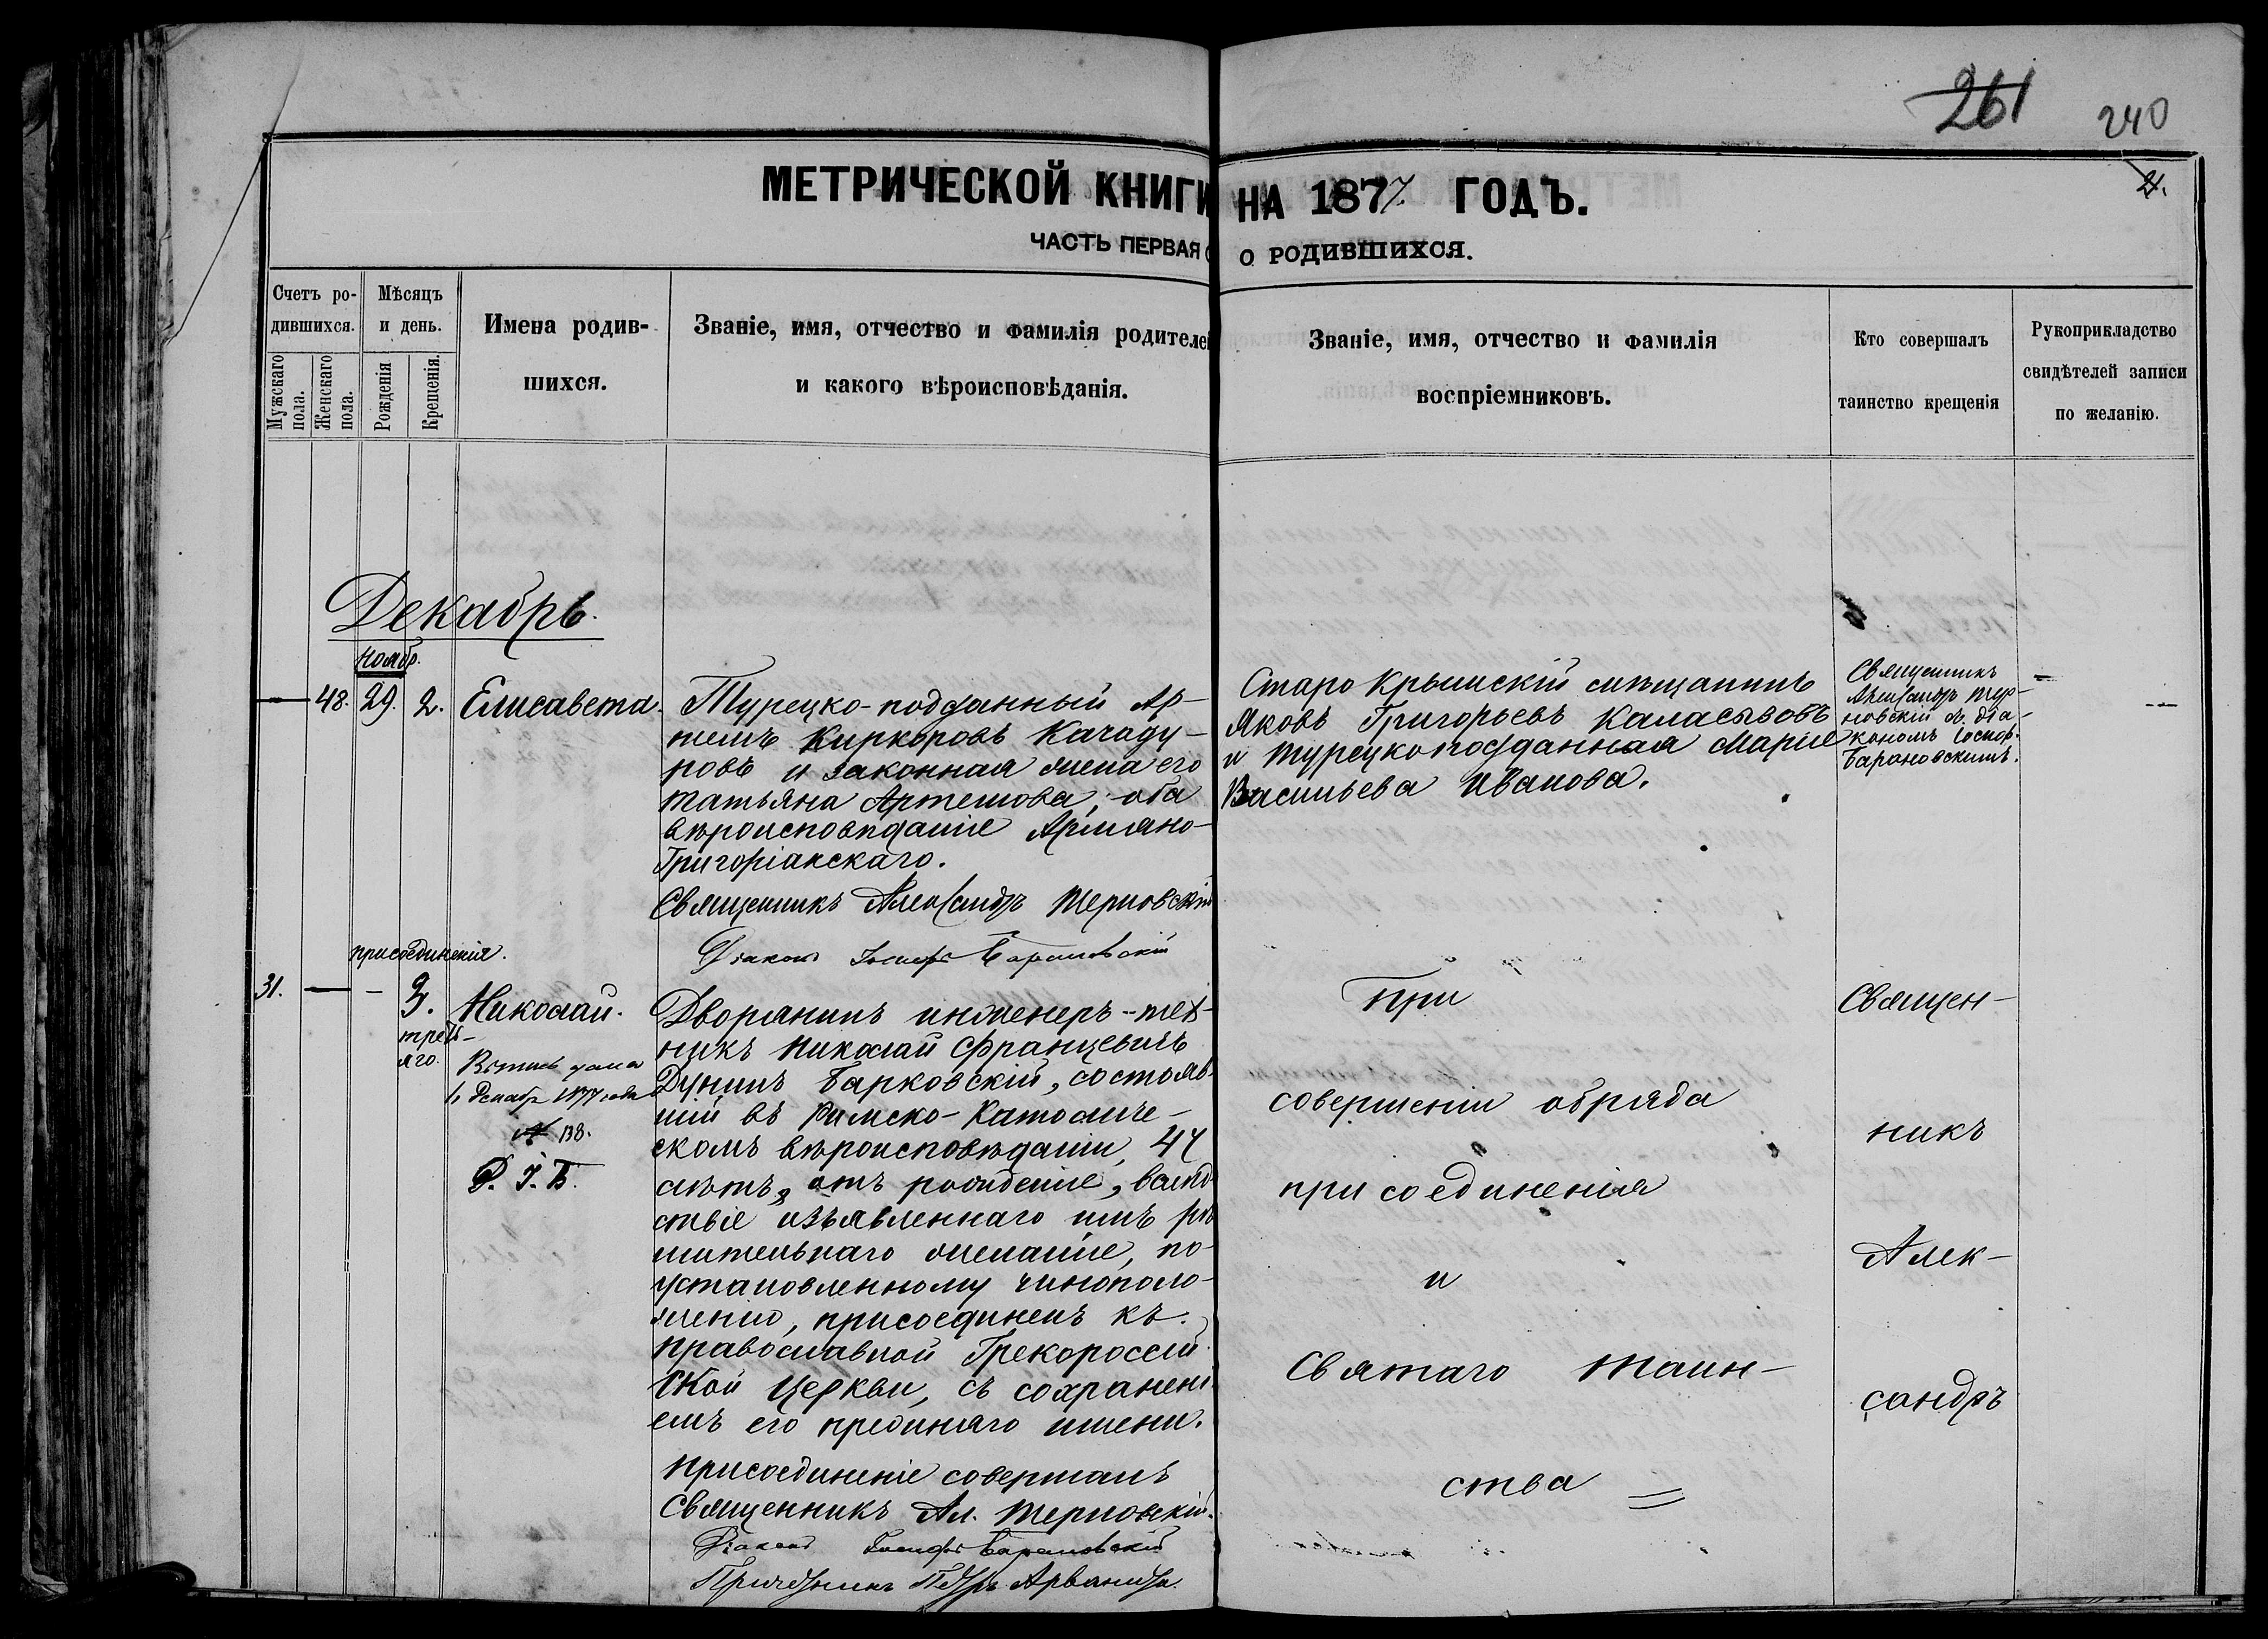 261
240
21.
МЕТРИЧЕСКОЙ КНИГИ НА 1877 ГОДЪ.
ЧАСТЬ ПЕРВАЯ О РОДИВШИХСЯ.
Счетъ ро-
дившихся.
Мужскаго
пола.
Женскаго
пола.
Мѣсяцъ
и день.
Рожденія
Крещенія.
Имена родив-
шихся.
Званіе, имя, отчество и фамилія родителей
и какого вѣроисповѣданія.
Званіе, имя, отчество и фамилія
воспріемниковъ.
Кто совершалъ
таинство крещенія
Рукоприкладство
свидѣтелей записи
по желанію.
Декабрь.
Ноябр.
— 48. 29. 2. Елисавета.
Турецко-подданный Ар-
темъ Киркоровъ Качаду-
ровъ и законная жена его
Татьяна Артемова, оба
вѣроисповѣданіе Армяно-
Григоріанскаго.
Священникъ Александръ Терновскій
Діаконъ Іосифъ Барановскій
Старо Крымскій мѣщанинъ
Яковъ Григорьевъ Каласызовъ
и турецкоподданная Марія
Васильева Иванова.
Священникъ
Александръ Тер-
новскій съ діа-
кономъ Іосиф.
Барановскимъ.
присоединенія.
31. — - 3. Николай.
треть-
яго.
декабр 1877 года
№ 138.
Дворянинъ инженеръ-тех-
никъ Николай Францевичъ
Дунинъ Барковскій, состояв-
шій въ Римско-Католиче-
скомъ вѣроисповѣданіи, 47
лѣтъ, отъ рожденіе, вслѣд-
ствіе изъявленнаго имъ рѣ
шительнаго желаніе, по-
установленному чинополо-
женію, присоединенъ къ
православной Грекороссій-
ской Церкви, съ сохранені-
емъ его прежняго имени.
Присоединеніе совершалъ
Священникъ Ал. Терновскій.
Діаконъ Іосифъ Барановскій
Причетникъ Петръ
При
совершеніи обряда
присоединенія
и
Святаго Таин-
ства
Священ-
никъ
Алек-
сандръ